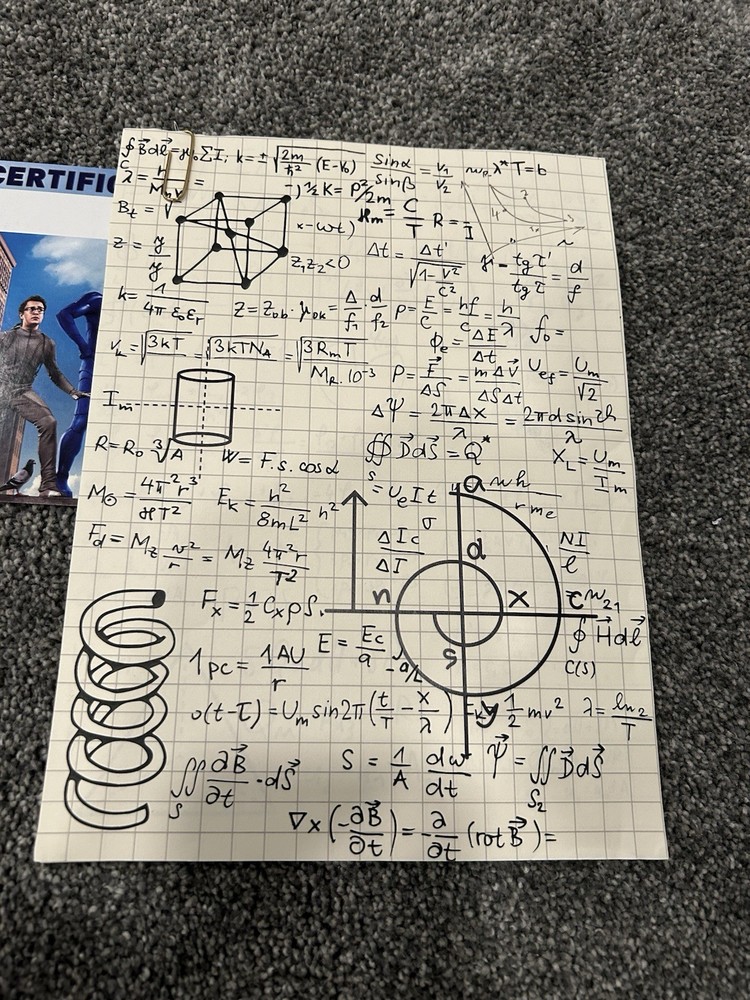 CERTIFIC
∮B⃗dl⃗=μ₀ΣI; k=±√(2m/ħ² (E-V₀) sinα/sinβ = V₁/V₂ λ*T=b
½ K= p²/2m
ϰm= C/T R=
x-ωt)
z= y'/y
z₁z₂<0
Δt= Δt'/√(1-v²/c²)
γ= tgτ'/tgτ = d/f
k= 1/4πε₀εᵣ
z=z₀b·γok= Δ/f₁ d/f₂
p= E/c = hf/c = h/λ f₀=
Φe= ΔE/Δt
vk=√(3kT/ =√(3kTN_A/ =√(3RmT/M_R·10⁻³
p= F⃗/ΔS = mΔv⃗/ΔSΔt
Uef= Um/√2
Im
Δψ= 2πΔx/λ = 2πd sin
R=R₀ ³√A
W=F.s.cosα
∯D⃗dS⃗=Q*
s
X_L= Um/Im
M⊙= 4π²r³/ϰT²
Ek= h²/8mL² n²
=UeIt
σ
a
nh/rme
Fd=Mz v²/r = Mz 4π²r/T²
ΔIc/ΔI
d
NI/ℓ
Fx= ½CxρS
n
x
c
w₂₁
1pc= 1AU/r
E= Ec/a
S
∮H⃗dl⃗
C(S)
o(t-τ)=Um sin2π(t/T - x/λ)
Ek
y
½mv²
λ= ln2/T
∬ ∂B⃗/∂t ·dS⃗
S
S= 1/A dw/dt
Ψ⃗=∬D⃗dS⃗
S₂
∇x(-∂B⃗/∂t)=-∂/∂t (rotB⃗)=